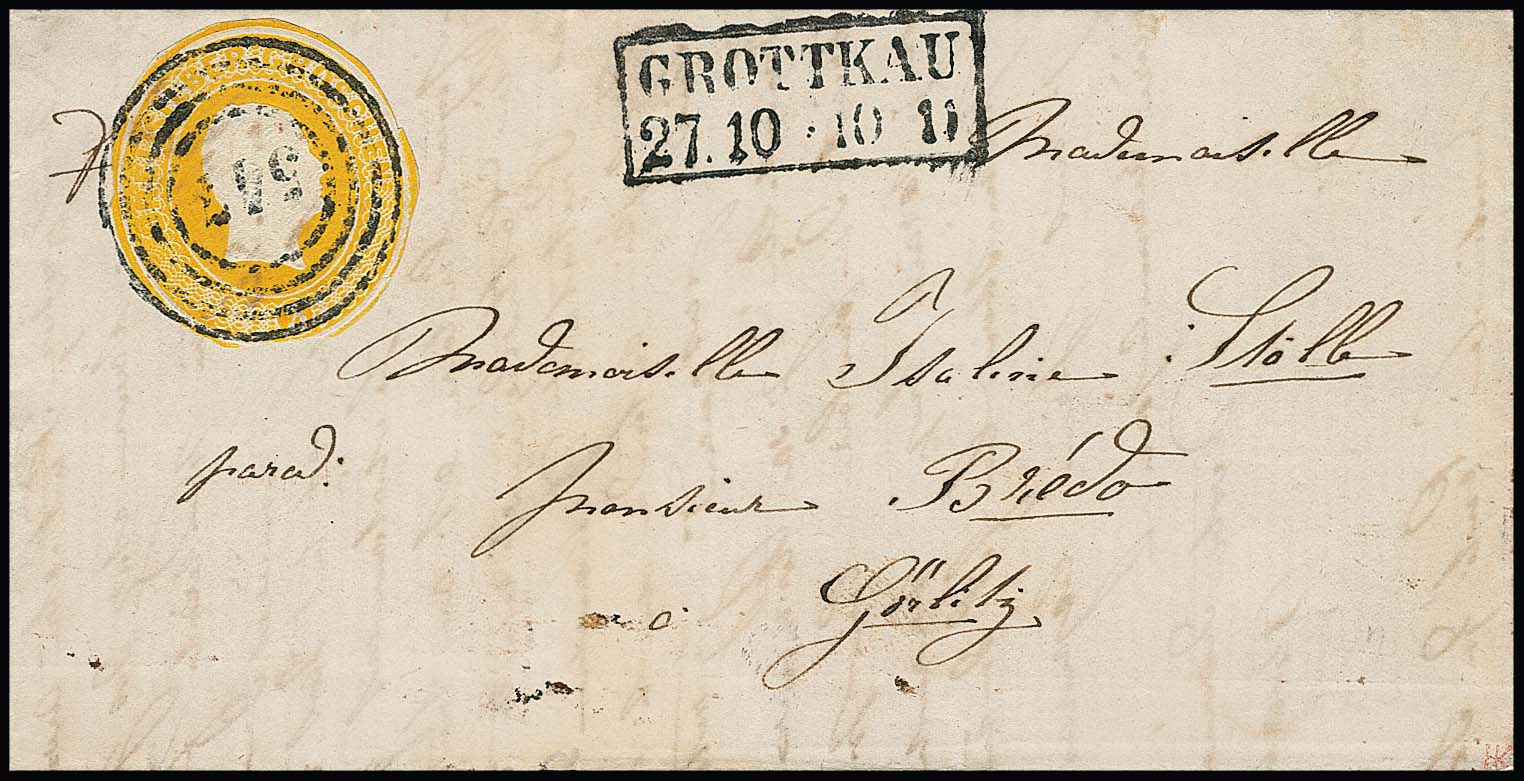 GROTTKAU
27.10 · 10 11
Mademoiselle
Mademoiselle Isaline Stölle
parad:
Monsieur Brédo
à Görlitz